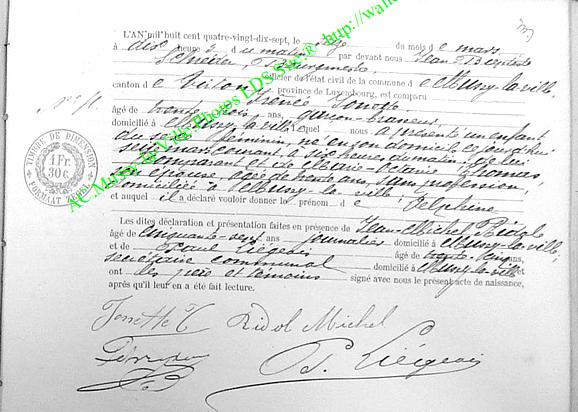 L'AN mil huit cent quatre-vingt-dix-sept, le seize du mois de mars
à dix heures du matin par devant nous Jean Baptiste
Schneider, Bourgmestre officier de l'état civil de la commune de Mussy-la-ville,
canton de Virton, province de Luxembourg, est comparu
âgé de trente trois ans, garçon-brasseur,
domicilié à Mussy la ville lequel nous a présenté un enfant
du sexe féminin, né en son domicile ce jourd'hui
seize mars courant, à six heures du matin, de lui
comparant et de Marie Thomas,
son épouse, âgée de trente ans, sans profession
domiciliée à Mussy-la-ville
et auquel il a déclaré vouloir donner le prénom de Delphine
Les dites déclaration et présentation faites en présence de Jean-Michel Ridol
âgé de cinquante-sept ans journalier domicilié à Mussy-la-ville,
et de Paul Liégeois âgé de trente ans,
secrétaire communal domicilié à Mussy-la-ville
ont les père et témoins signé avec nous le présent acte de naissance,
après qu'il leur en a été fait lecture.
Ridol Michel
P. Liégeois
TIMBRE DE DIMENSION
1 Fr.
30 C.
FORMAAT ZEGEL
AC Musson Photos LDS http://wall